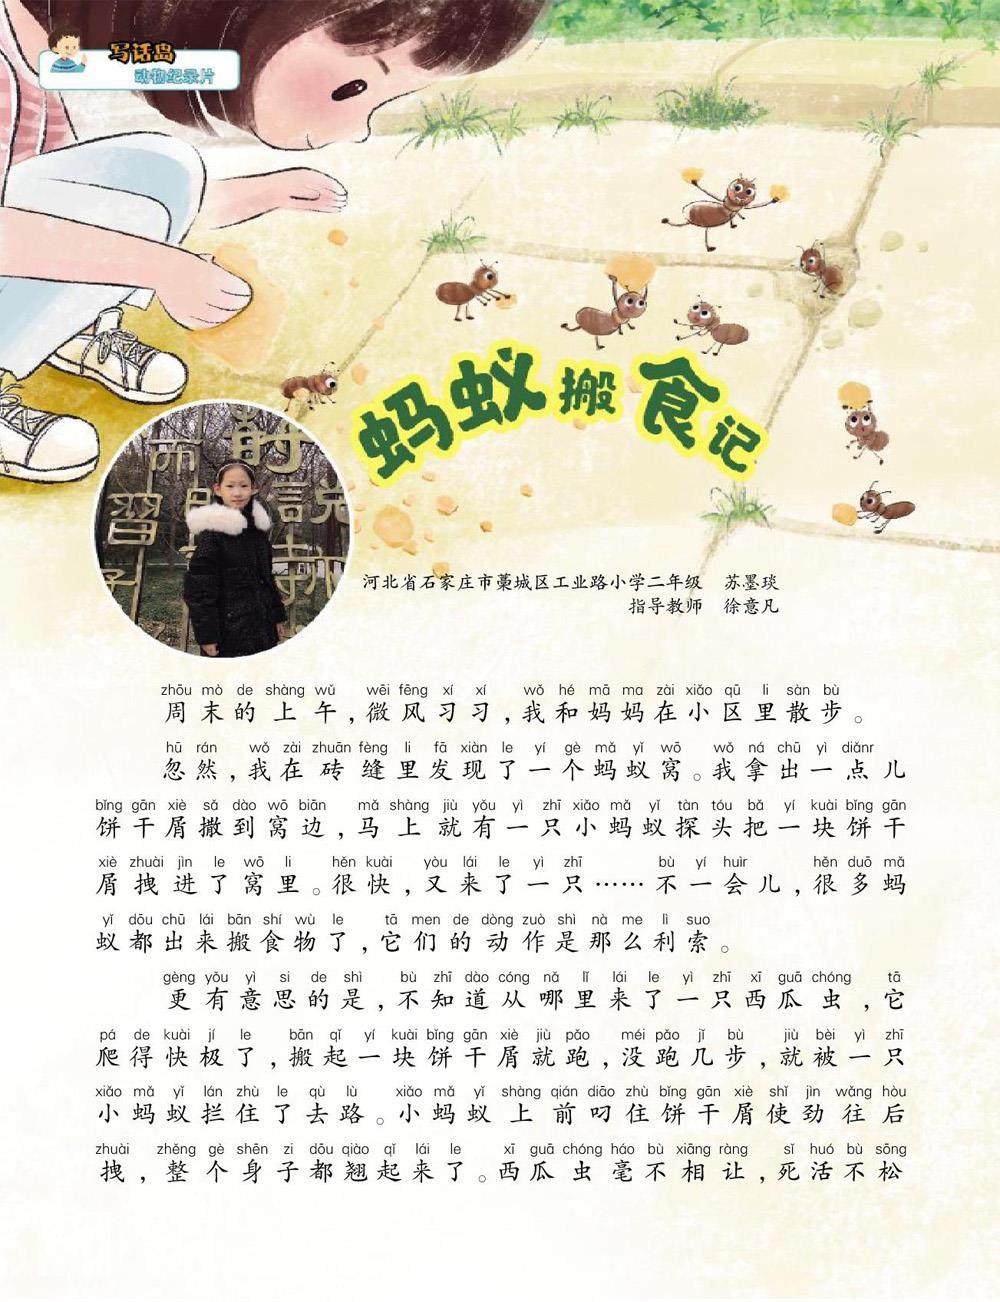 写话岛
动物纪录片
蚂蚁搬食记
而 時
習 說
子
河北省石家庄市藁城区工业路小学二年级 苏墨琰
指导教师 徐意凡
zhōu mò de shàng wǔ wēi fēng xí xí wǒ hé mā ma zài xiǎo qū li sàn bù
周末的上午,微风习习,我和妈妈在小区里散步。
hū rán wǒ zài zhuān fèng li fā xiàn le yí gè mǎ yǐ wō wǒ ná chū yì diǎnr
忽然,我在砖缝里发现了一个蚂蚁窝。我拿出一点儿
bǐng gān xiè sǎ dào wō biān mǎ shàng jiù yǒu yì zhī xiǎo mǎ yǐ tàn tóu bǎ yí kuài bǐng gān
饼干屑撒到窝边,马上就有一只小蚂蚁探头把一块饼干
xiè zhuài jìn le wō li hěn kuài yòu lái le yì zhī bù yí huìr hěn duō mǎ
屑拽进了窝里。很快,又来了一只……不一会儿,很多蚂
yǐ dōu chū lái bān shí wù le tā men de dòng zuò shì nà me lì suo
蚁都出来搬食物了,它们的动作是那么利索。
gèng yǒu yì si de shì bù zhī dào cóng nǎ lǐ lái le yì zhī xī guā chóng tā
更有意思的是,不知道从哪里来了一只西瓜虫,它
pá de kuài jí le bān qǐ yí kuài bǐng gān xiè jiù pǎo méi pǎo jǐ bù jiù bèi yì zhī
爬得快极了,搬起一块饼干屑就跑,没跑几步,就被一只
xiǎo mǎ yǐ lán zhù le qù lù xiǎo mǎ yǐ shàng qián diāo zhù bǐng gān xiè shǐ jìn wǎng hòu
小蚂蚁拦住了去路。小蚂蚁上前叼住饼干屑使劲往后
zhuài zhěng gè shēn zi dōu qiào qǐ lái le xī guā chóng háo bù xiāng ràng sǐ huó bù sōng
拽,整个身子都翘起来了。西瓜虫毫不相让,死活不松